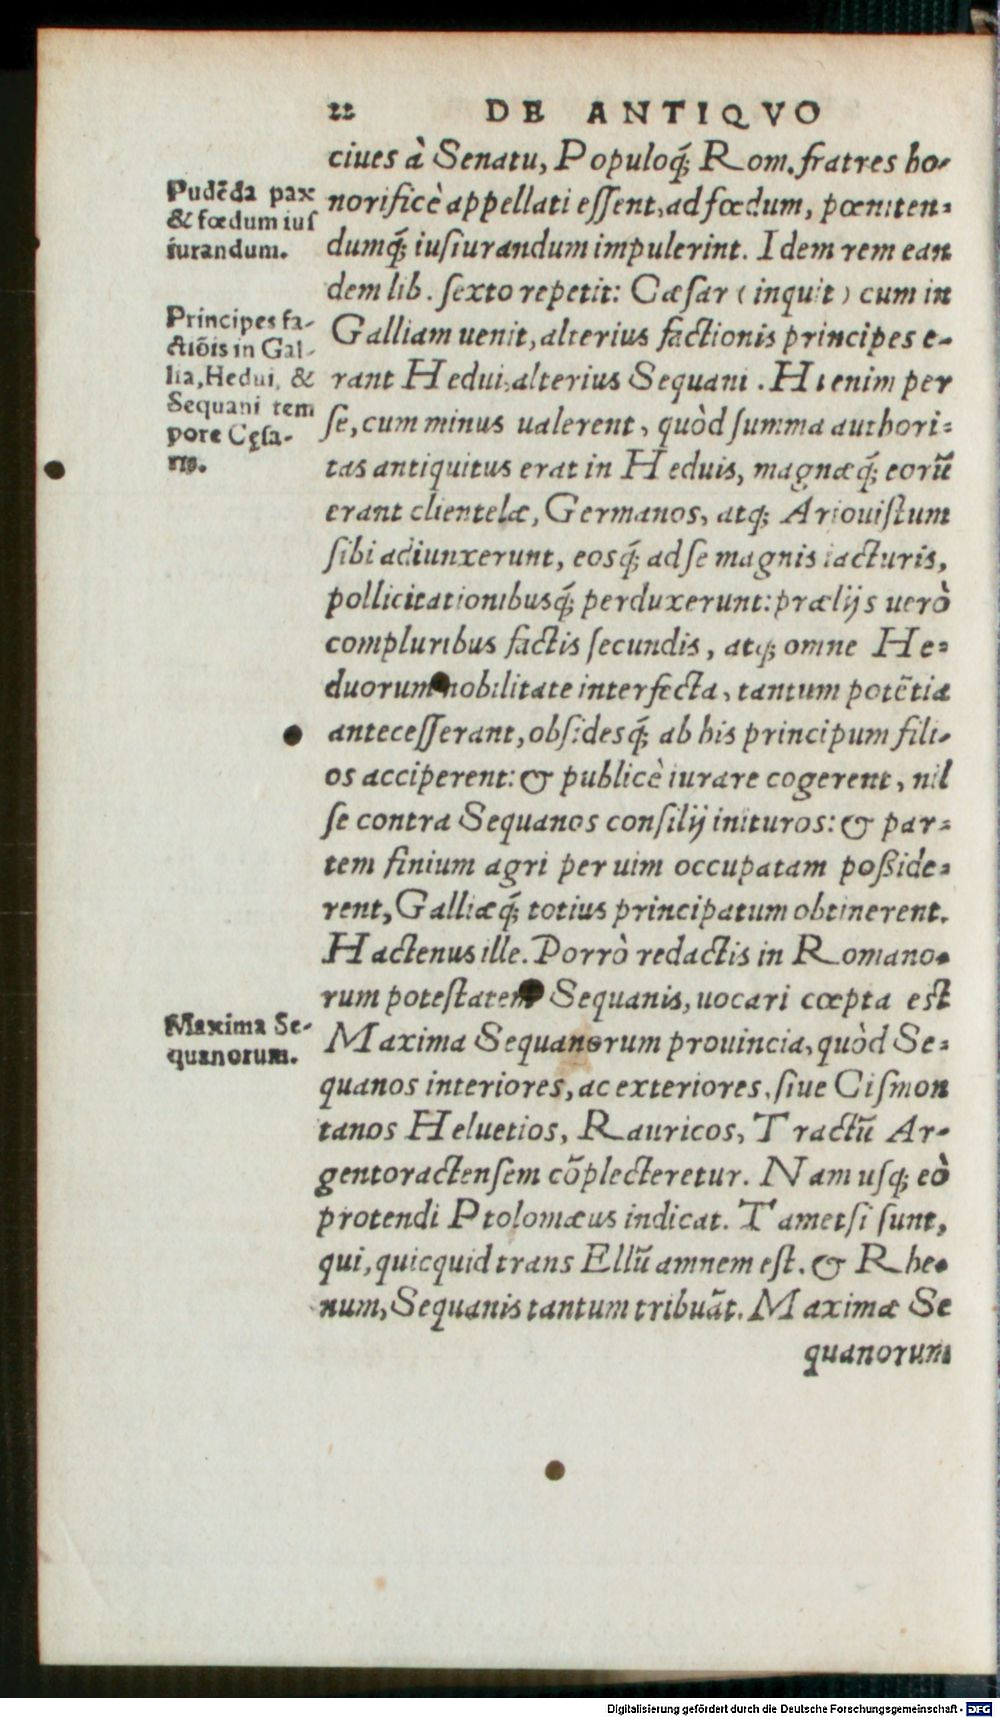 22 DE ANTIQVO
ciues à Senatu, Populoq́; Rom. fratres ho-
norificè appellati essent, ad fœdum, pœniten-
dumq́; iusiurandum impulerint. Idem rem ean
dem lib. sexto repetit: Cæsar (inquit) cum in
Galliam uenit, alterius factionis principes e-
rant Hedui, alterius Sequani. Hi enim per
se, cum minus ualerent, quòd summa authori-
tas antiquitus erat in Heduis, magnæq́; eorū
erant clientelæ, Germanos, atq; Ariouistum
sibi adiunxerunt, eosq́; ad se magnis iacturis,
pollicitationibusq́; perduxerunt: prælijs uerò
compluribus factis secundis, atq; omne He-
duorum nobilitate interfecta, tantum potētia
antecesserant, obsidesq́; ab his principum fili-
os acciperent: & publicè iurare cogerent, nil
se contra Sequanos consilij inituros: & par-
tem finium agri per uim occupatam poßide-
rent, Galliæq́; totius principatum obtinerent.
Hactenus ille. Porrò redactis in Romano-
rum potestatem Sequanis, uocari cœpta est
Maxima Sequanorum prouincia, quòd Se-
quanos interiores, ac exteriores, siue Cismon
tanos Heluetios, Rauricos, Tractū Ar-
gentoractensem cōplecteretur. Nam usq; eò
protendi Ptolomæus indicat. Tametsi sunt,
qui, quicquid trans Ellū amnem est, & Rhe-
num, Sequanis tantum tribuāt. Maximæ Se
quanorum
Pudēda pax
& fœdum ius
iurandum.
Principes fa-
ctiōis in Gal-
lia, Hedui, &
Sequani tem
pore Cęsa-
ris.
Maxima Se-
quanorum.
Digitalisierung gefördert durch die Deutsche Forschungsgemeinschaft - DFG